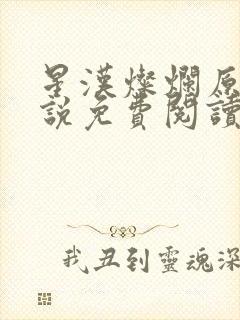 星漢燦爛原
說免費閱讀
我丑到靈魂深